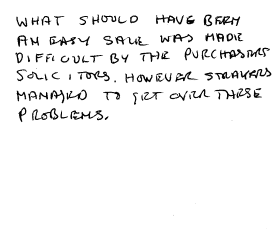 WHAT SHOULD HAVE BEEN
AN EASY SALE WAS MADE
DIFFICULT BY THE PURCHASERS
SOLICITORS. HOWEVER STRAKERS
MANAGED TO GET OVER THESE
PROBLEMS.